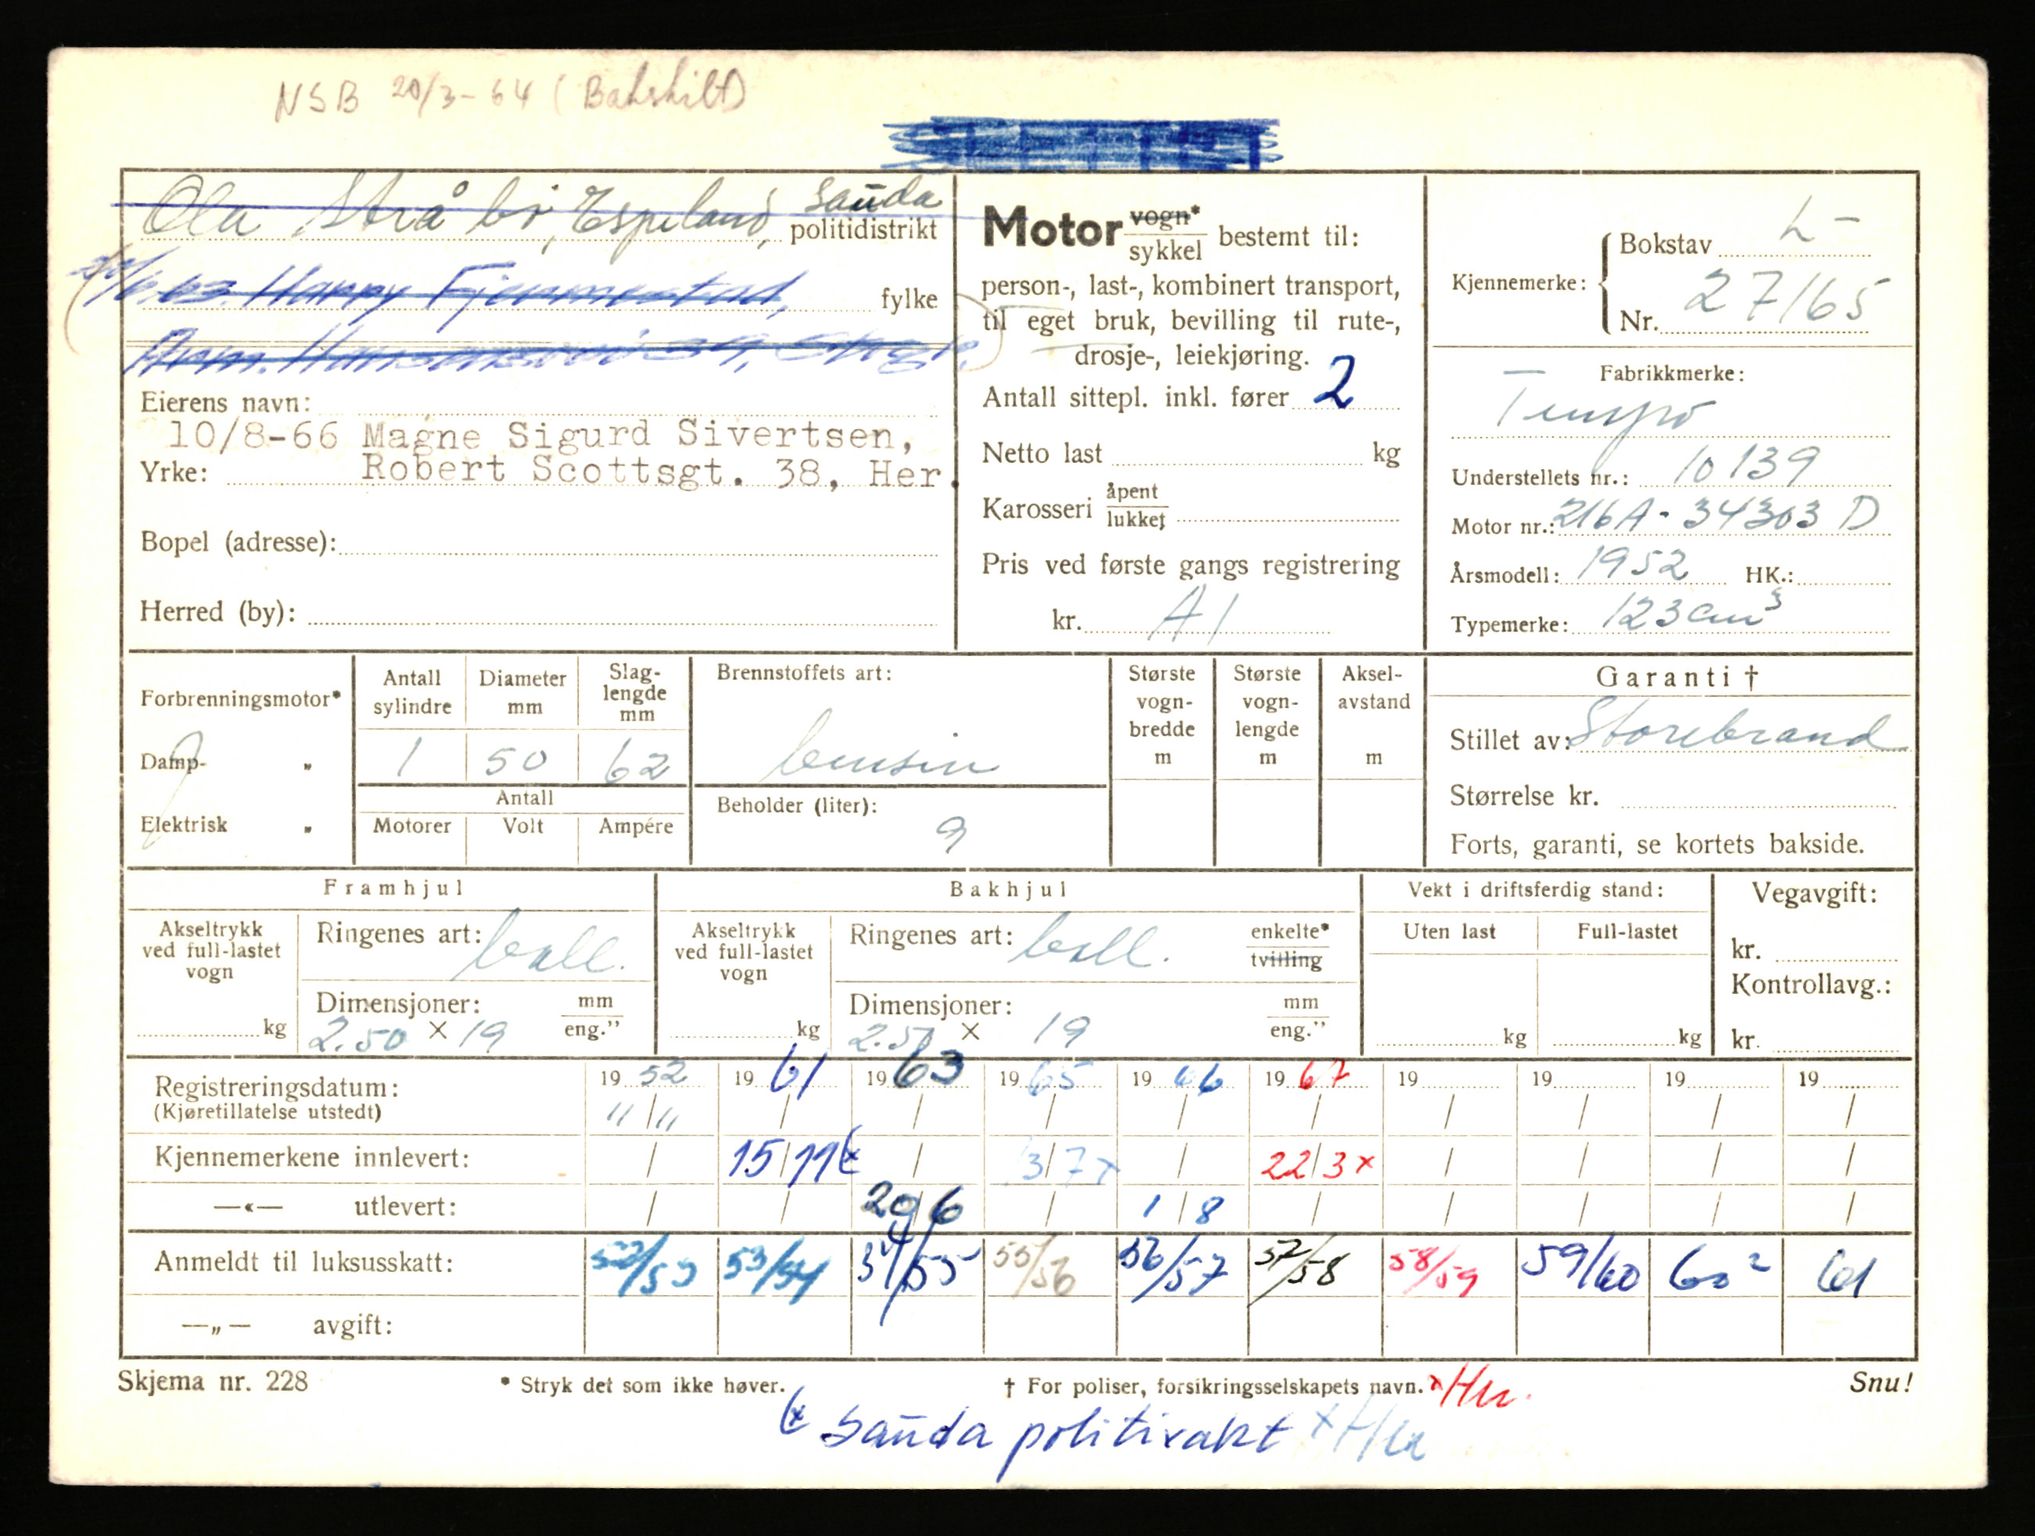 NSB 20/3-64 (Bakskilt)
Ola Stråbø, Espeland, Sauda politidistrikt
63 Harry Fjermestad, fylke
Motor vogn* / sykkel bestemt til:
person-, last-, kombinert transport,
til eget bruk, bevilling til rute-,
drosje-, leiekjøring.
Antall sittepl. inkl. fører 2
Netto last kg
Karosseri åpent / lukket
Pris ved første gangs registrering
kr. A1
Kjennemerke: Bokstav L-
Nr. 27165
Fabrikkmerke:
Tempo
Understellets nr.: 10139
Motor nr.: 216A-34303 D
Årsmodell: 1952 HK.:
Typemerke: 123 cm³
Eierens navn:
10/8-66 Magne Sigurd Sivertsen,
Yrke: Robert Scottsgt. 38, Her.
Bopel (adresse):
Herred (by):
Forbrenningsmotor*
Damp- „
Elektrisk „
Antall sylindre Diameter mm Slag-lengde mm
1 50 62
Antall
Motorer Volt Ampére
Brennstoffets art:
bensin
Beholder (liter):
9
Største vogn-bredde m
Største vogn-lengde m
Aksel-avstand m
Garanti †
Stillet av: Storebrand
Størrelse kr.
Forts, garanti, se kortets bakside.
Framhjul
Akseltrykk ved full-lastet vogn kg
Ringenes art: ball.
Dimensjoner: mm / eng."
2.50 × 19
Bakhjul
Akseltrykk ved full-lastet vogn kg
Ringenes art: ball. enkelte* / tvilling
Dimensjoner: mm / eng."
2.50 × 19
Vekt i driftsferdig stand:
Uten last Full-lastet
kg kg
Vegavgift:
kr.
Kontrollavg.:
kr.
Registreringsdatum: 1952 1961 1963 1965 1966 1967 19 19 19 19
(Kjøretillatelse utstedt) 11/11 / / / / / / / / /
Kjennemerkene innlevert: / 15/11 (x / 3/7 x / 22/3 x / / / /
—«— utlevert: / / 20/6 / 1/8 / / / / /
Anmeldt til luksusskatt: 52/53 53/54 54/55 55/56 56/57 57/58 58/59 59/60 60² 61
—„— avgift:
Skjema nr. 228 * Stryk det som ikke høver. † For poliser, forsikringsselskapets navn. x Her. Snu!
(x Sauda politivakt x Her